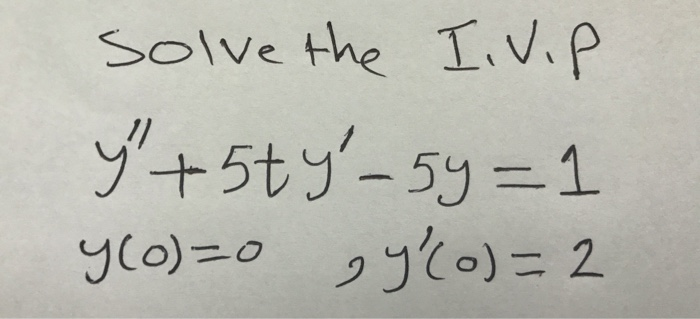 Solve the I.V.P
y'' + 5ty' - 5y = 1
y(0)=0 , y'(0) = 2